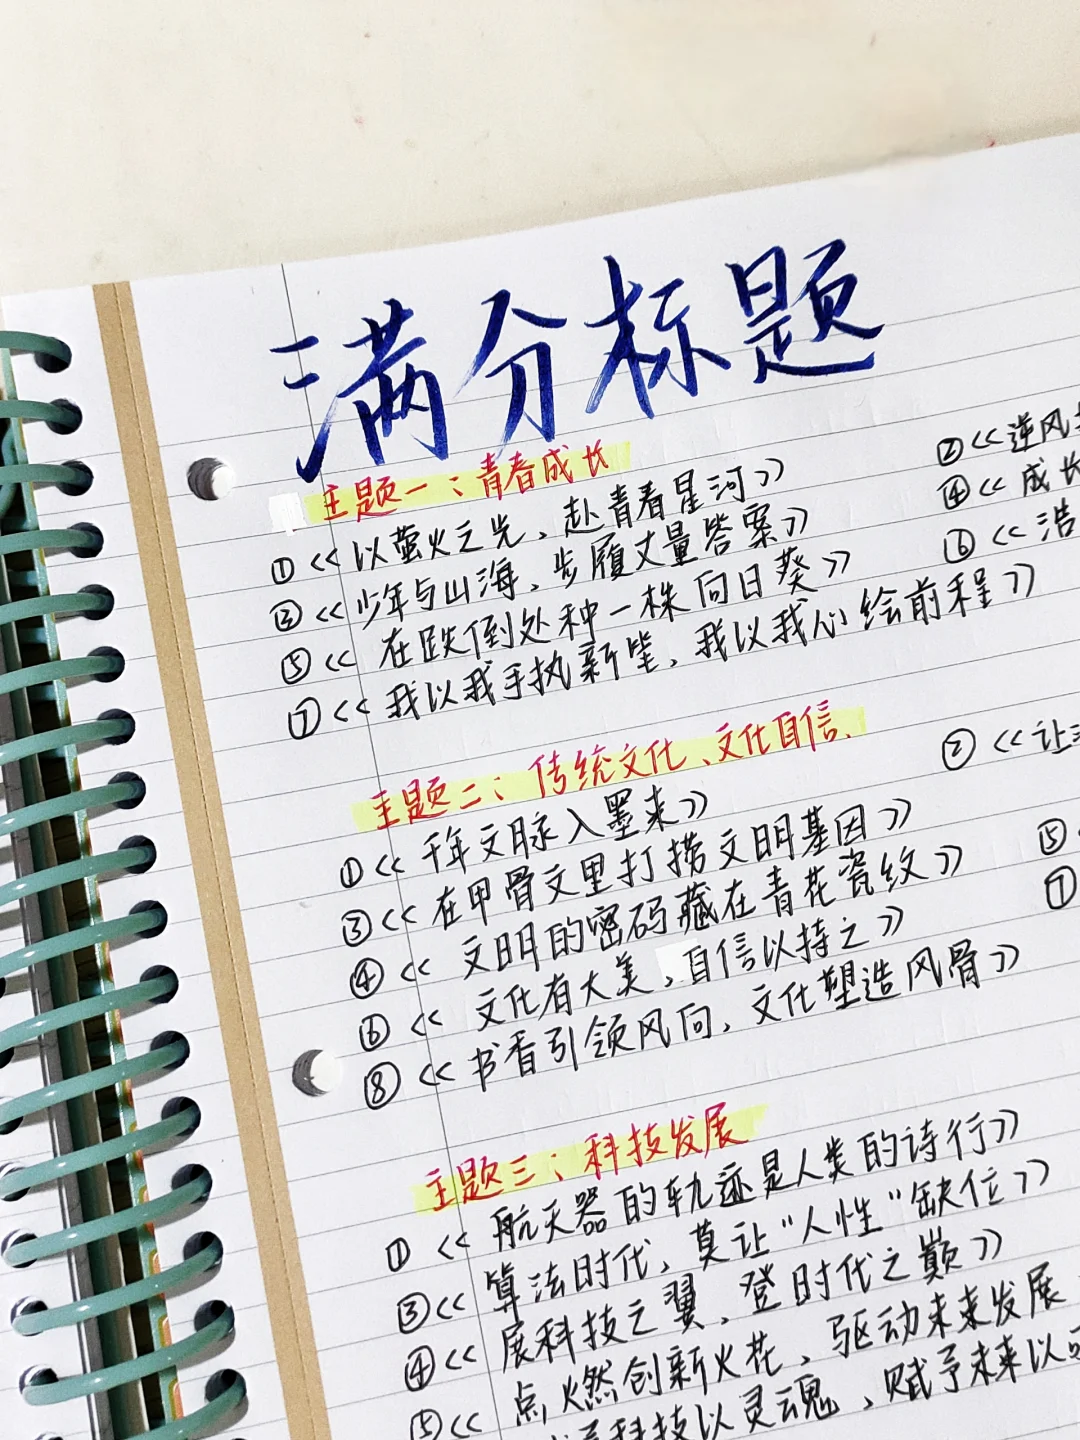 满分标题
主题一：青春成长
①《以萤火之光，赴青春星河》
②《逆风
③《少年与山海，步履丈量答案》
④《成长
⑤《在跌倒处种一株向日葵》
⑥《浩
⑦《我以我手执新笔，我以我心绘前程》
主题二：传统文化、文化自信
①《千年文脉入墨来》
②《让
③《在甲骨文里打捞文明基因》
④《文明的密码藏在青花瓷纹》
⑤
⑥《文化有大美，自信以持之》
⑦
⑧《书香引领风向，文化塑造风骨》
主题三：科技发展
①《航天器的轨迹是人类的诗行》
③《算法时代，莫让“人性”缺位》
④《展科技之翼，登时代之巅》
⑤《点燃创新火花，驱动未来发展
予科技以灵魂，赋予未来以可